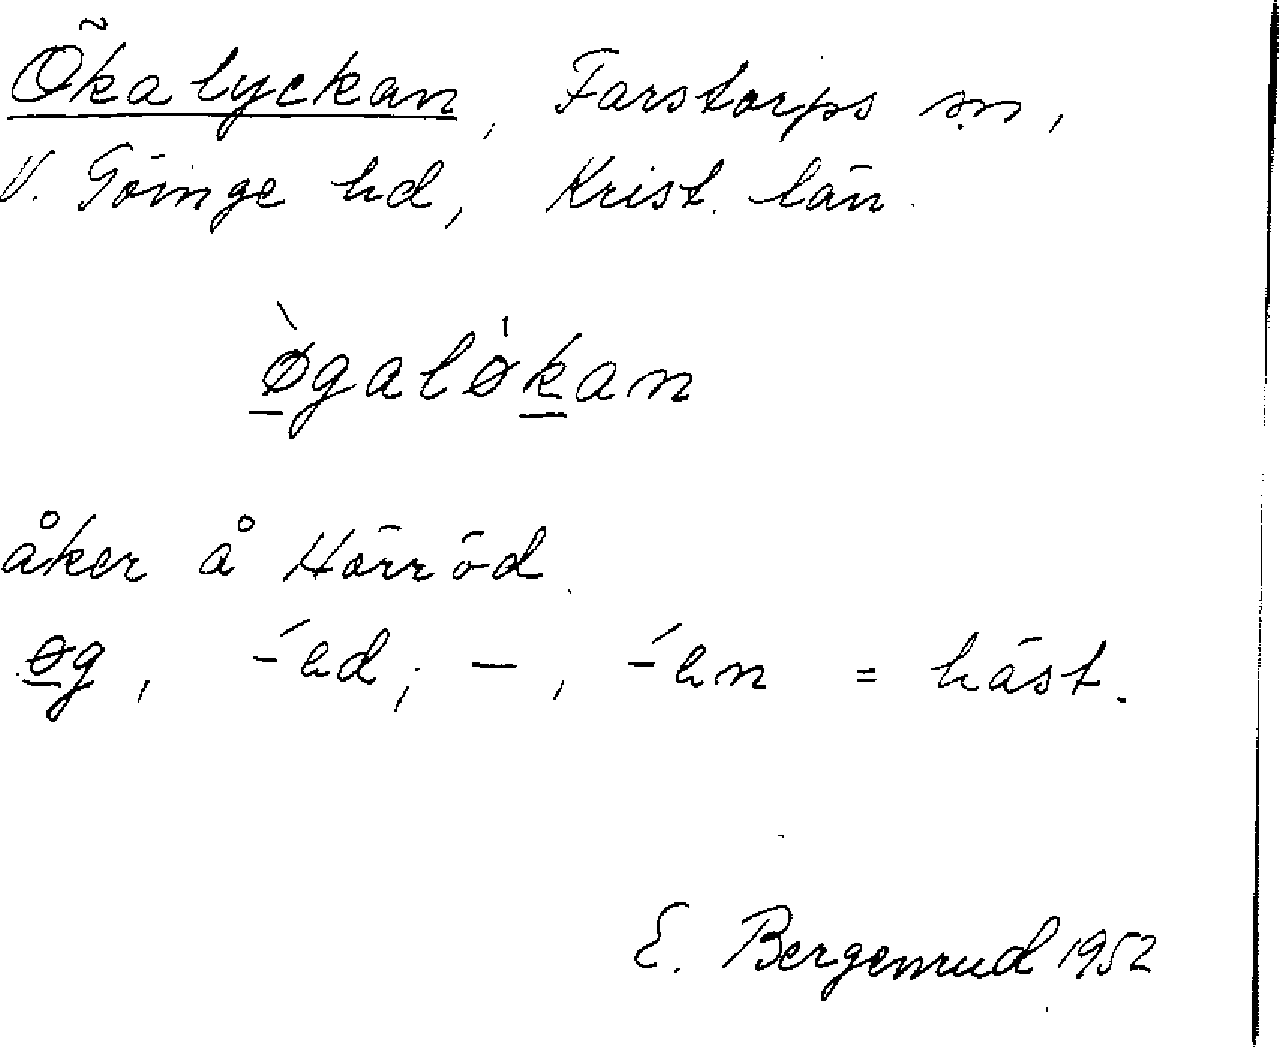 Ökalyckan, Farstorps sn,
V. Göinge hd, Krist. län.
ø̀galø̍kan
åker å Hörröd.
øg, -́ed; –, -́en = häst.
E. Bergenrud 1952